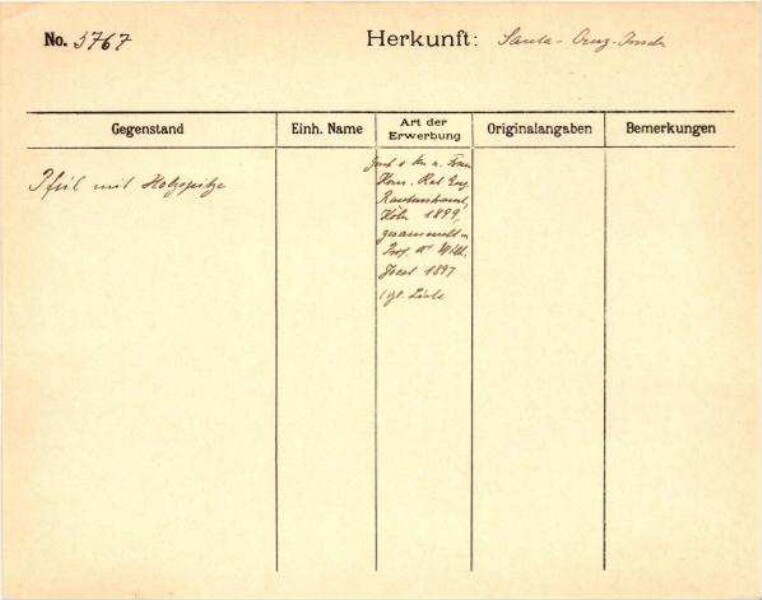 No. 3767 Herkunft: Santa-Cruz-Inseln
Gegenstand Einh. Name Art der Erwerbung Originalangaben Bemerkungen
Pfeil mit Holzspitze
Gesch. v. Hrn. u. Frau
Kom. Rat Eug.
Rautenstrauch,
Köln 1899,
gesammelt v.
Prof. Dr Wilh.
Joest 1897
Liste